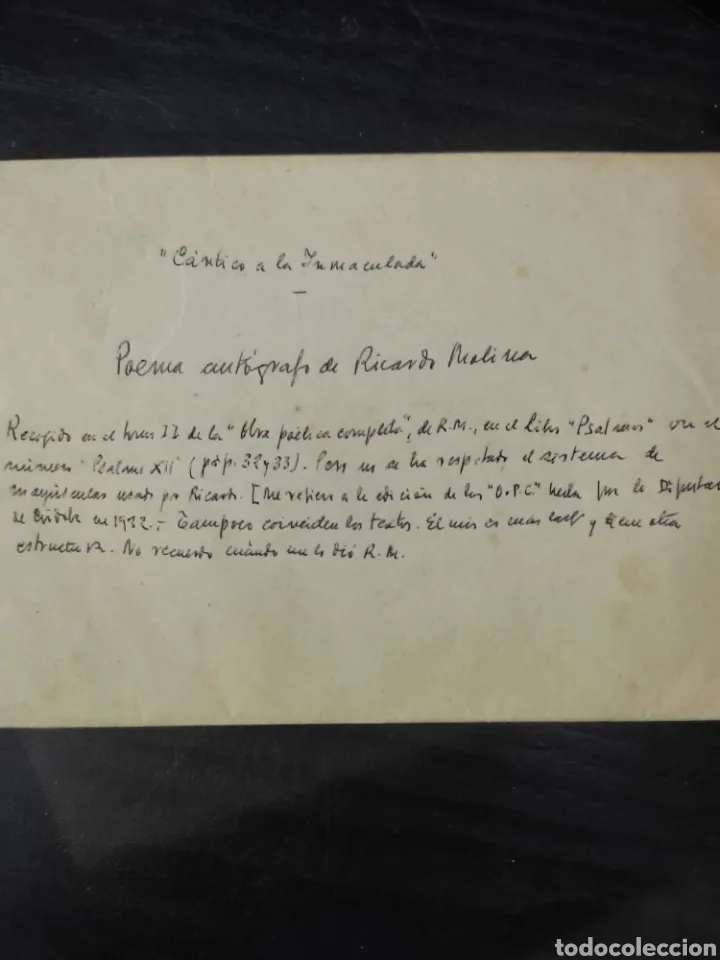 "Cántico a la Inmaculada"
—
Poema autógrafo de Ricardo Molina
Recogido en el tomo II de la "Obra poética completa", de R.M., en el libro "Psalmos" con el
número "Psalmo XII" (págs. 32 y 33). Pero no se ha respetado el sistema de
mayúsculas usado por Ricardo. [Me refiero a la edición de las "O.P.C." hecha por la Diputac
de Córdoba en 1982.- Tampoco coinciden los textos. El mío es más largo y tiene otra
estructura. No recuerdo cuándo me lo dió R.M.
todocoleccion